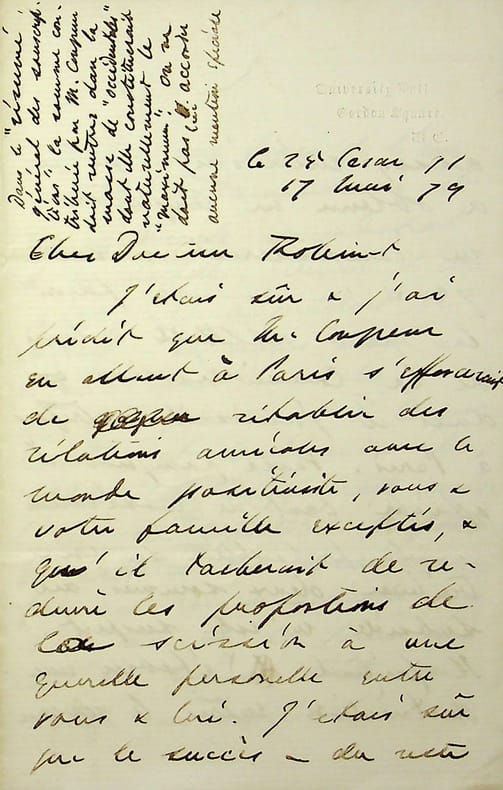 University Hall
Gordon Square
W. C.
le 25 César 91
17 Mai 79
Cher Docteur Robinet
J'étais sûr & j'ai
prédit que Mr Congreve
en allant à Paris s'efforcerait
de rétablir des
rélations amicales avec le
monde positiviste, vous &
votre famille exceptés, &
qu'il tacherait de re-
duire les proportions de
la scission à une
querelle personelle entre
vous & lui. J'etais sûr
que le succès — du reste
Dans le "résumé
général des souscrip-
tions" la somme con-
tribuée par M. Congreve
doit rentrer dans la
masse de "occidentales"
dont elle constituerait
naturellement le
"maximum". On ne
doit pas lui accorder
aucune mention spéciale